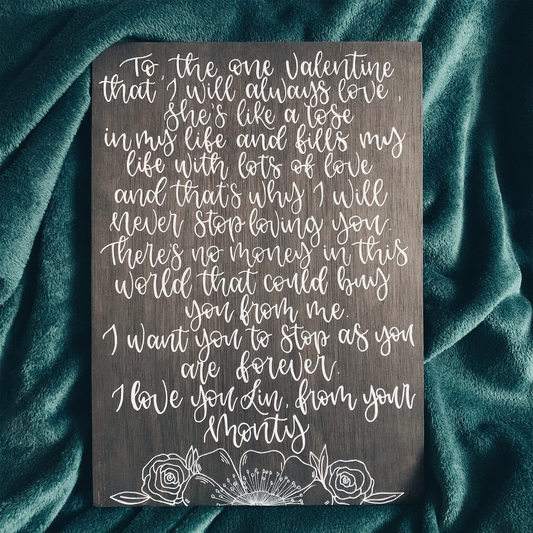 To, the one Valentine
that I will always love,
She's like a rose
in my life and fills my
life with lots of love
and that's why I will
never stop loving you.
There's no money in this
world that could buy
you from me.
I want you to stop as you
are forever.
I love you Lin, from your
Monty